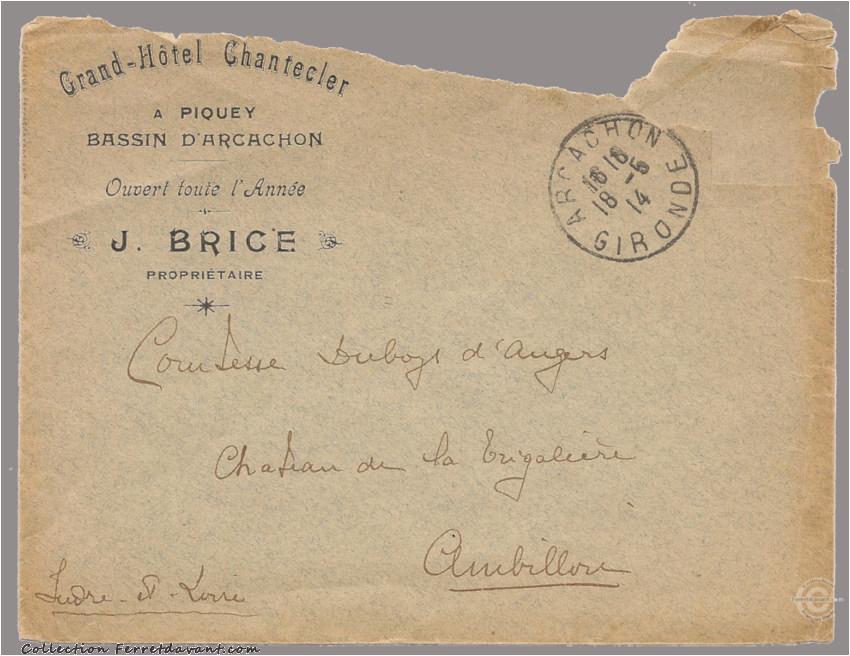 Grand-Hôtel Chantecler
A PIQUEY
BASSIN D'ARCACHON
Ouvert toute l'Année
J. BRICE
PROPRIÉTAIRE
ARCACHON
18 18
18 -5
14
GIRONDE
Comtesse Duboys d'Angers
Chateau de la Trigalière
Ambillou
Indre-et-Loire
Collection Ferretdavant.com